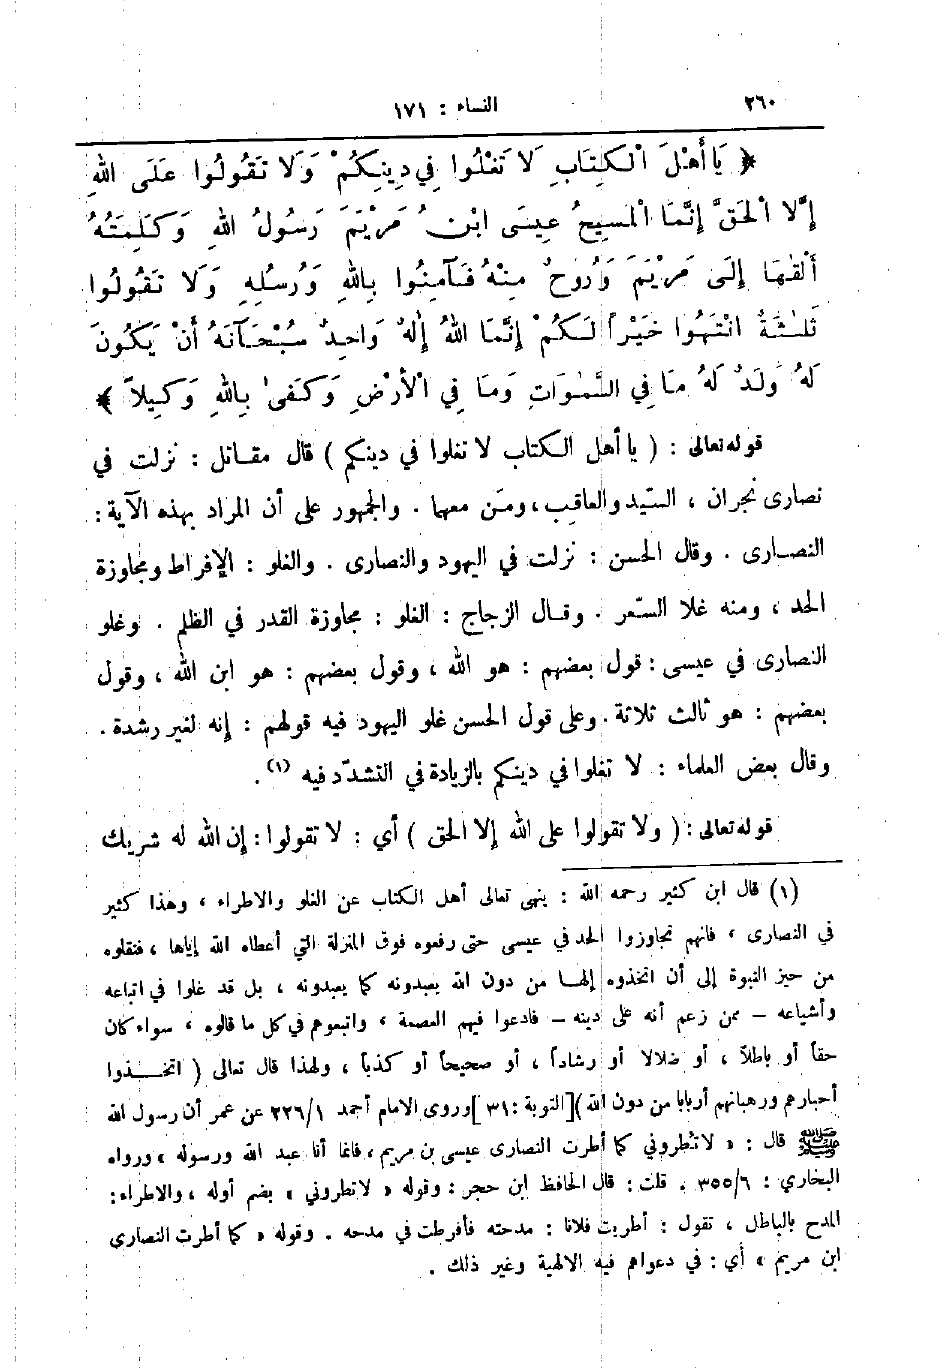 ٢٦٠ النساء : ١٧١
﴿ يَا أَهْلَ الْكِتَابِ لَا تَغْلُوا فِي دِينِكُمْ وَلَا تَقُولُوا عَلَى اللهِ
إِلَّا الْحَقَّ إِنَّمَا الْمَسِيحُ عِيسَى ابْنُ مَرْيَمَ رَسُولُ اللهِ وَكَلِمَتُهُ
أَلْقٰهَا إِلَى مَرْيَمَ وَرُوحٌ مِنْهُ فَآمِنُوا بِاللهِ وَرُسُلِهِ وَلَا تَقُولُوا
ثَلٰثَةٌ انْتَهُوا خَيْراً لَكُمْ إِنَّمَا اللهُ إِلٰهٌ وَاحِدٌ سُبْحَانَهُ أَنْ يَكُونَ
لَهُ وَلَدٌ لَهُ مَا فِي السَّمٰوَاتِ وَمَا فِي الْأَرْضِ وَكَفَىٰ بِاللهِ وَكِيلاً ﴾
قوله تعالى : ( يا أهل الكتاب لا تغلوا في دينكم ) قال مقاتل : نزلت في
نصارى نجران ، السّيد والعاقِب ، ومَن معهما . والجمهور على أن المراد بهذه الآية :
النصارى . وقال الحسن : نزلت في اليهود والنصارى . والغلو : الإفراط ومجاوزة
الحد ، ومنه غلا السّعر . وقال الزجاج : الغلو : مجاوزة القدر في الظلم . وغلو
النصارى في عيسى : قول بعضهم : هو الله ، وقول بعضهم : هو ابن الله ، وقول
بعضهم : هو ثالث ثلاثة . وعلى قول الحسن غلو اليهود فيه قولهم : إنه لغير رشدة .
وقال بعض العلماء : لا تغلوا في دينكم بالزيادة في التشدّد فيه (١) .
قوله تعالى : ( ولا تقولوا على الله إلا الحق ) أي : لا تقولوا : إن الله له شريك
(١) قال ابن كثير رحمه الله : ينهى تعالى أهل الكتاب عن الغلو والاطراء ، وهذا كثير
في النصارى ، فانهم تجاوزوا الحد في عيسى حتى رفعوه فوق المنزلة التي أعطاه الله إياها ، فنقلوه
من حيز النبوة إلى أن اتخذوه إلهـا من دون الله يعبدونه كما يعبدونه ، بل قد غلوا في اتباعه
وأشياعه – ممن زعم أنه على دينه – فادعوا فيهم العصمة ، واتبعوهم في كل ما قالوه ، سواء كان
حقاً أو باطلاً ، أو ضلالا أو رشاداً ، أو صحيحاً أو كذباً ، ولهذا قال تعالى ( اتخـــذوا
أحبارهم ورهبانهم أربابا من دون الله )[ التوبة : ٣١ ] وروى الامام أحمد ٢٢٦/١ عن عمر أن رسول الله
ﷺ قال : « لا تُطروني كما أطرت النصارى عيسى بن مريم ، فانما أنا عبد الله ورسوله » ورواه
البخاري : ٣٥٥/٦ . قلت : قال الحافظ ابن حجر : وقوله « لا تطروني » بضم أوله ، والاطراء :
المدح بالباطل ، تقول : أطريت فلانا : مدحته فأفرطت في مدحه . وقوله « كما أطرت النصارى
ابن مريم » أي : في دعواهم فيه الالهية وغير ذلك .